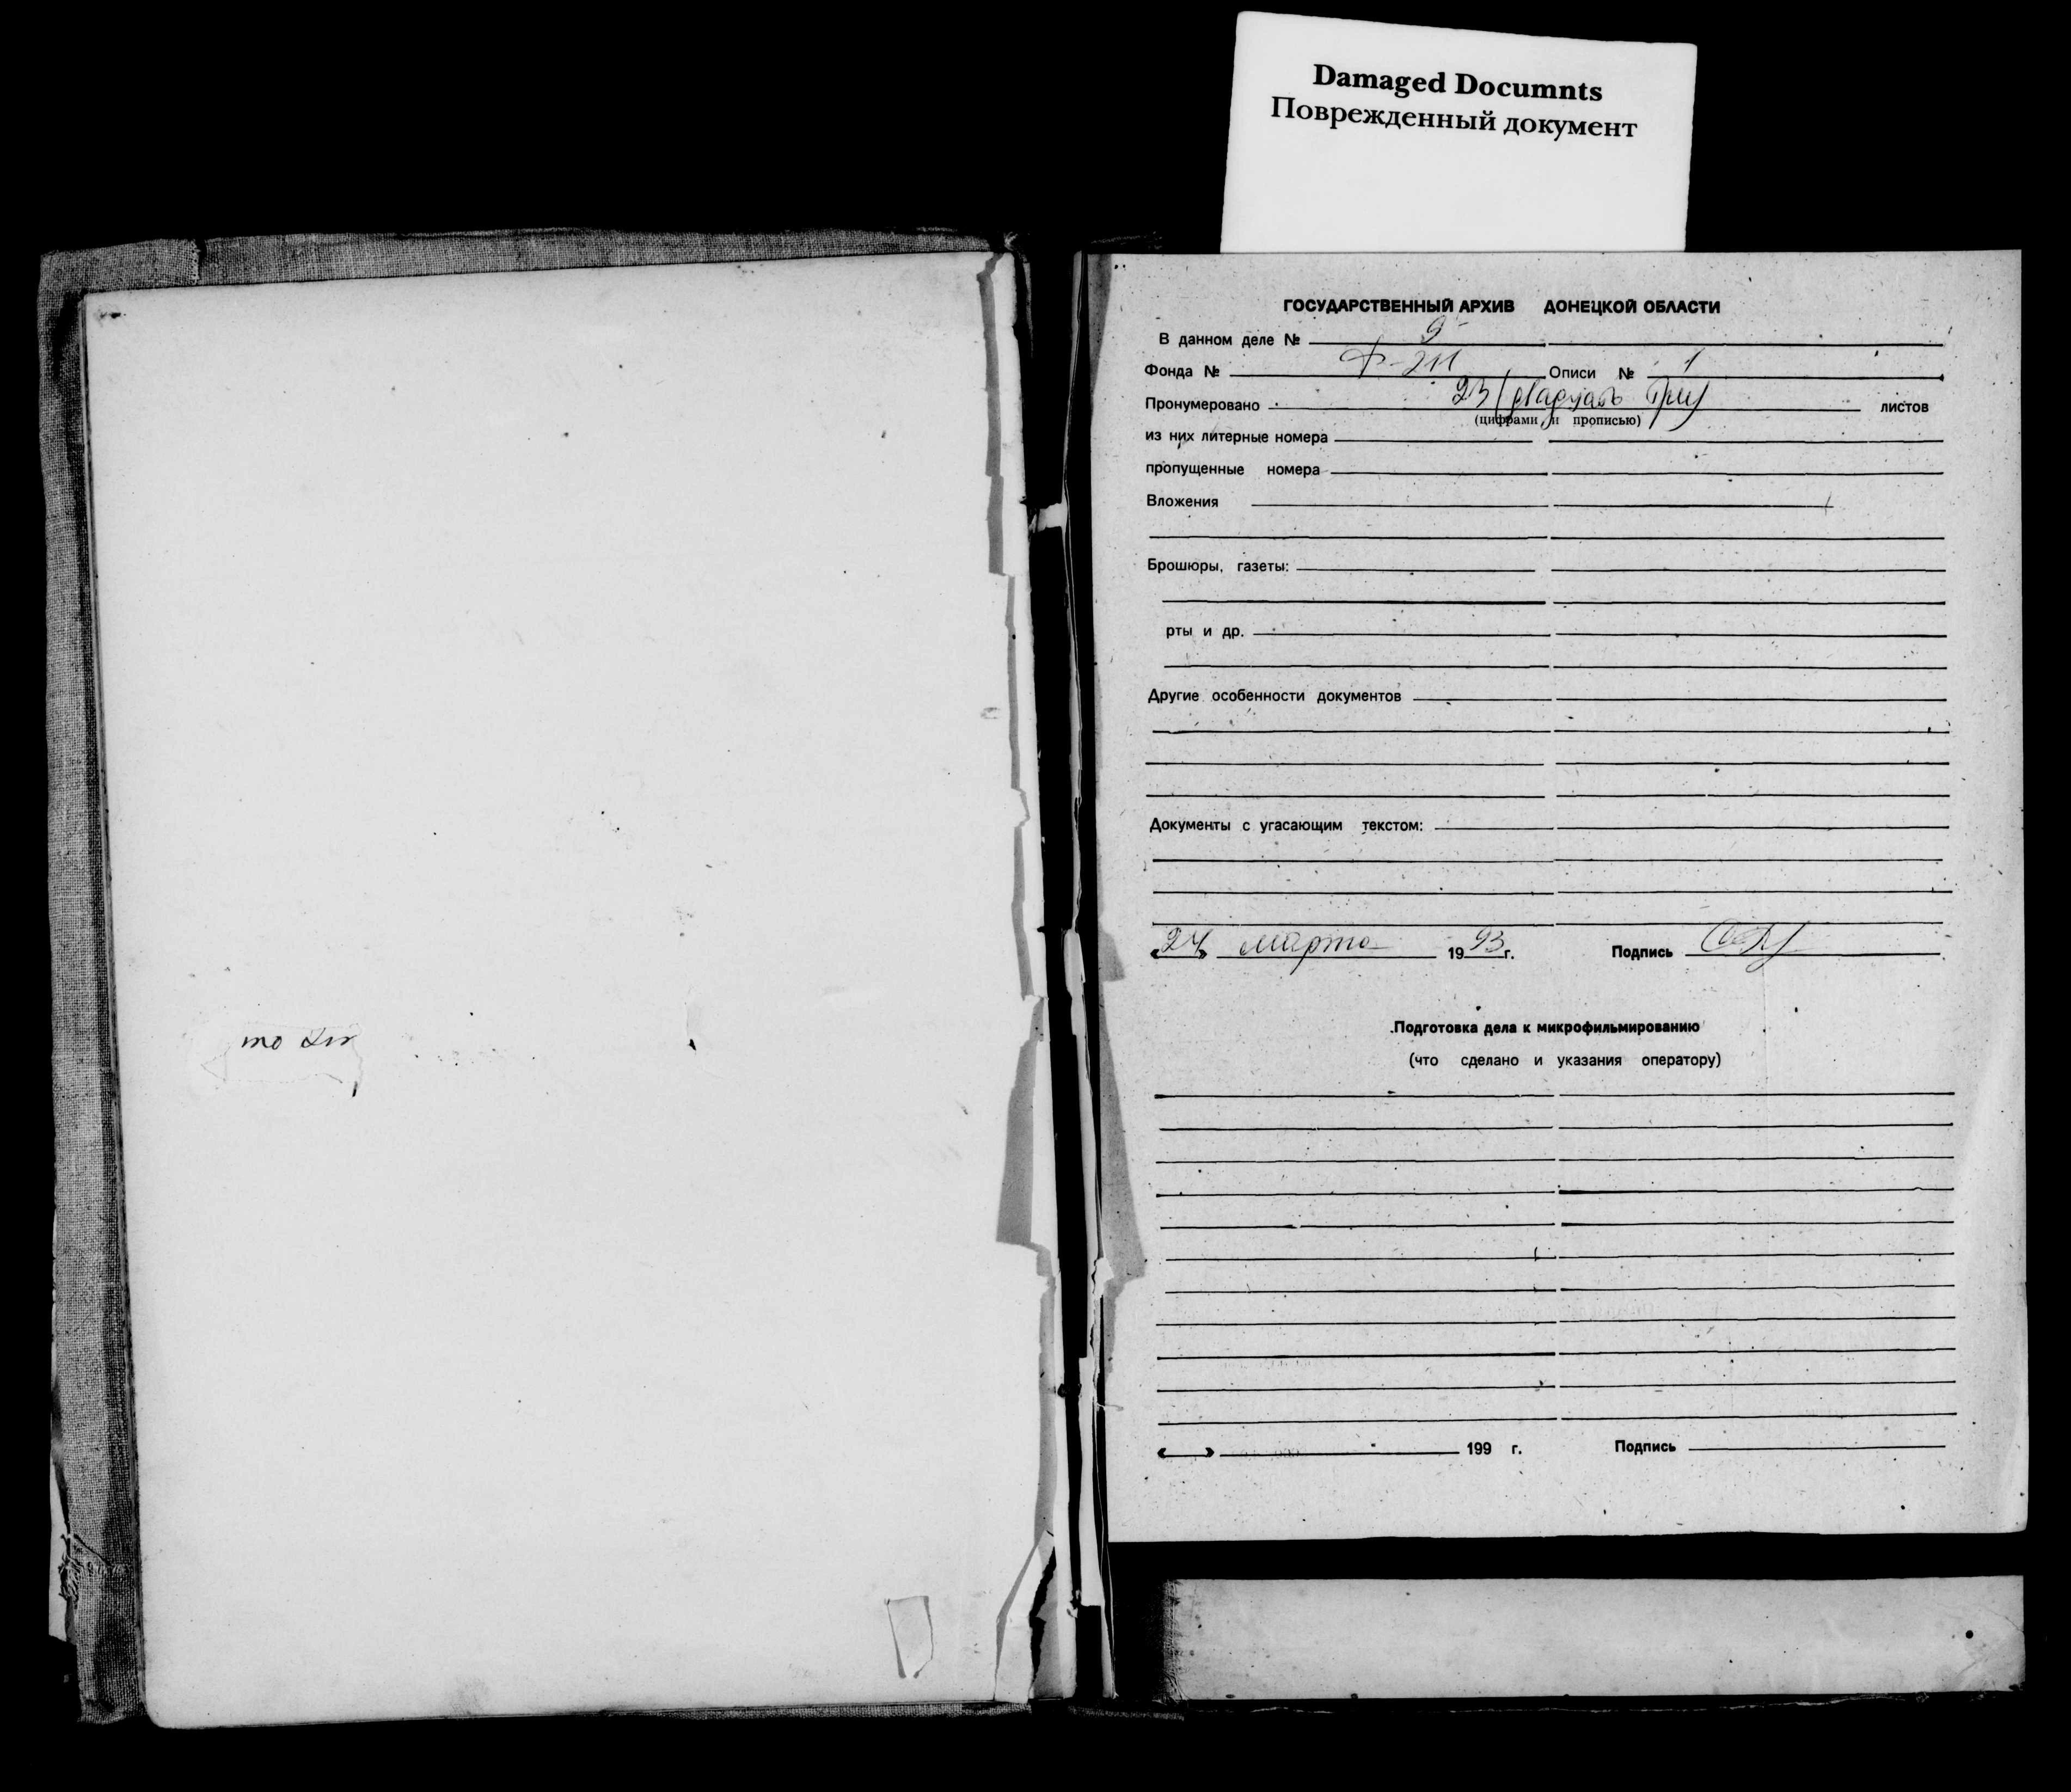 Damaged Documnts
Поврежденный документ
ГОСУДАРСТВЕННЫЙ АРХИВ ДОНЕЦКОЙ ОБЛАСТИ
В данном деле № 9
Фонда № Ф-211 Описи № 1
Пронумеровано 23 (двадцать три) листов
(цифрами и прописью)
из них литерные номера
пропущенные номера
Вложения
Брошюры, газеты:
рты и др.
Другие особенности документов
Документы с угасающим текстом:
«24» марта 1993 г. Подпись
Подготовка дела к микрофильмированию
(что сделано и указания оператору)
« » 199 г. Подпись